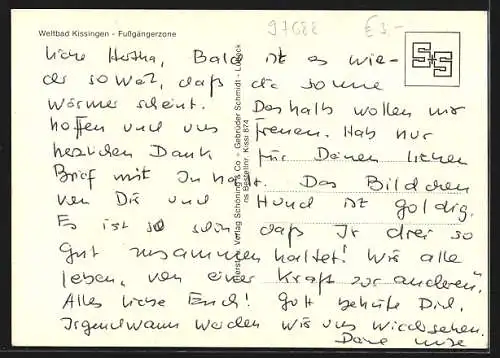 97688 € 3,-
Weltbad Kissingen - Fußgängerzone
liebe Hertha, Bald ist es wie-
der so weit, daß die Sonne
wärmer scheint. Deshalb wollen wir
hoffen und uns freuen. Hab nur
herzlichen Dank für Deinen lieben
Brief mit Inhalt. Das Bildchen
von Dir und Hund ist goldig.
Es ist so schön daß Ir drei so
gut zusammen haltet! Wir alle
leben, von einer Kraft zur anderen"
Alles liebe Euch! Gott behüte Dich.
Irgendwann werden wir uns wiedersehen.
Deine
Verlag Schöning & Co + Gebrüder Schmidt - Lübeck
Bestellnr. Kissi 874
S+S